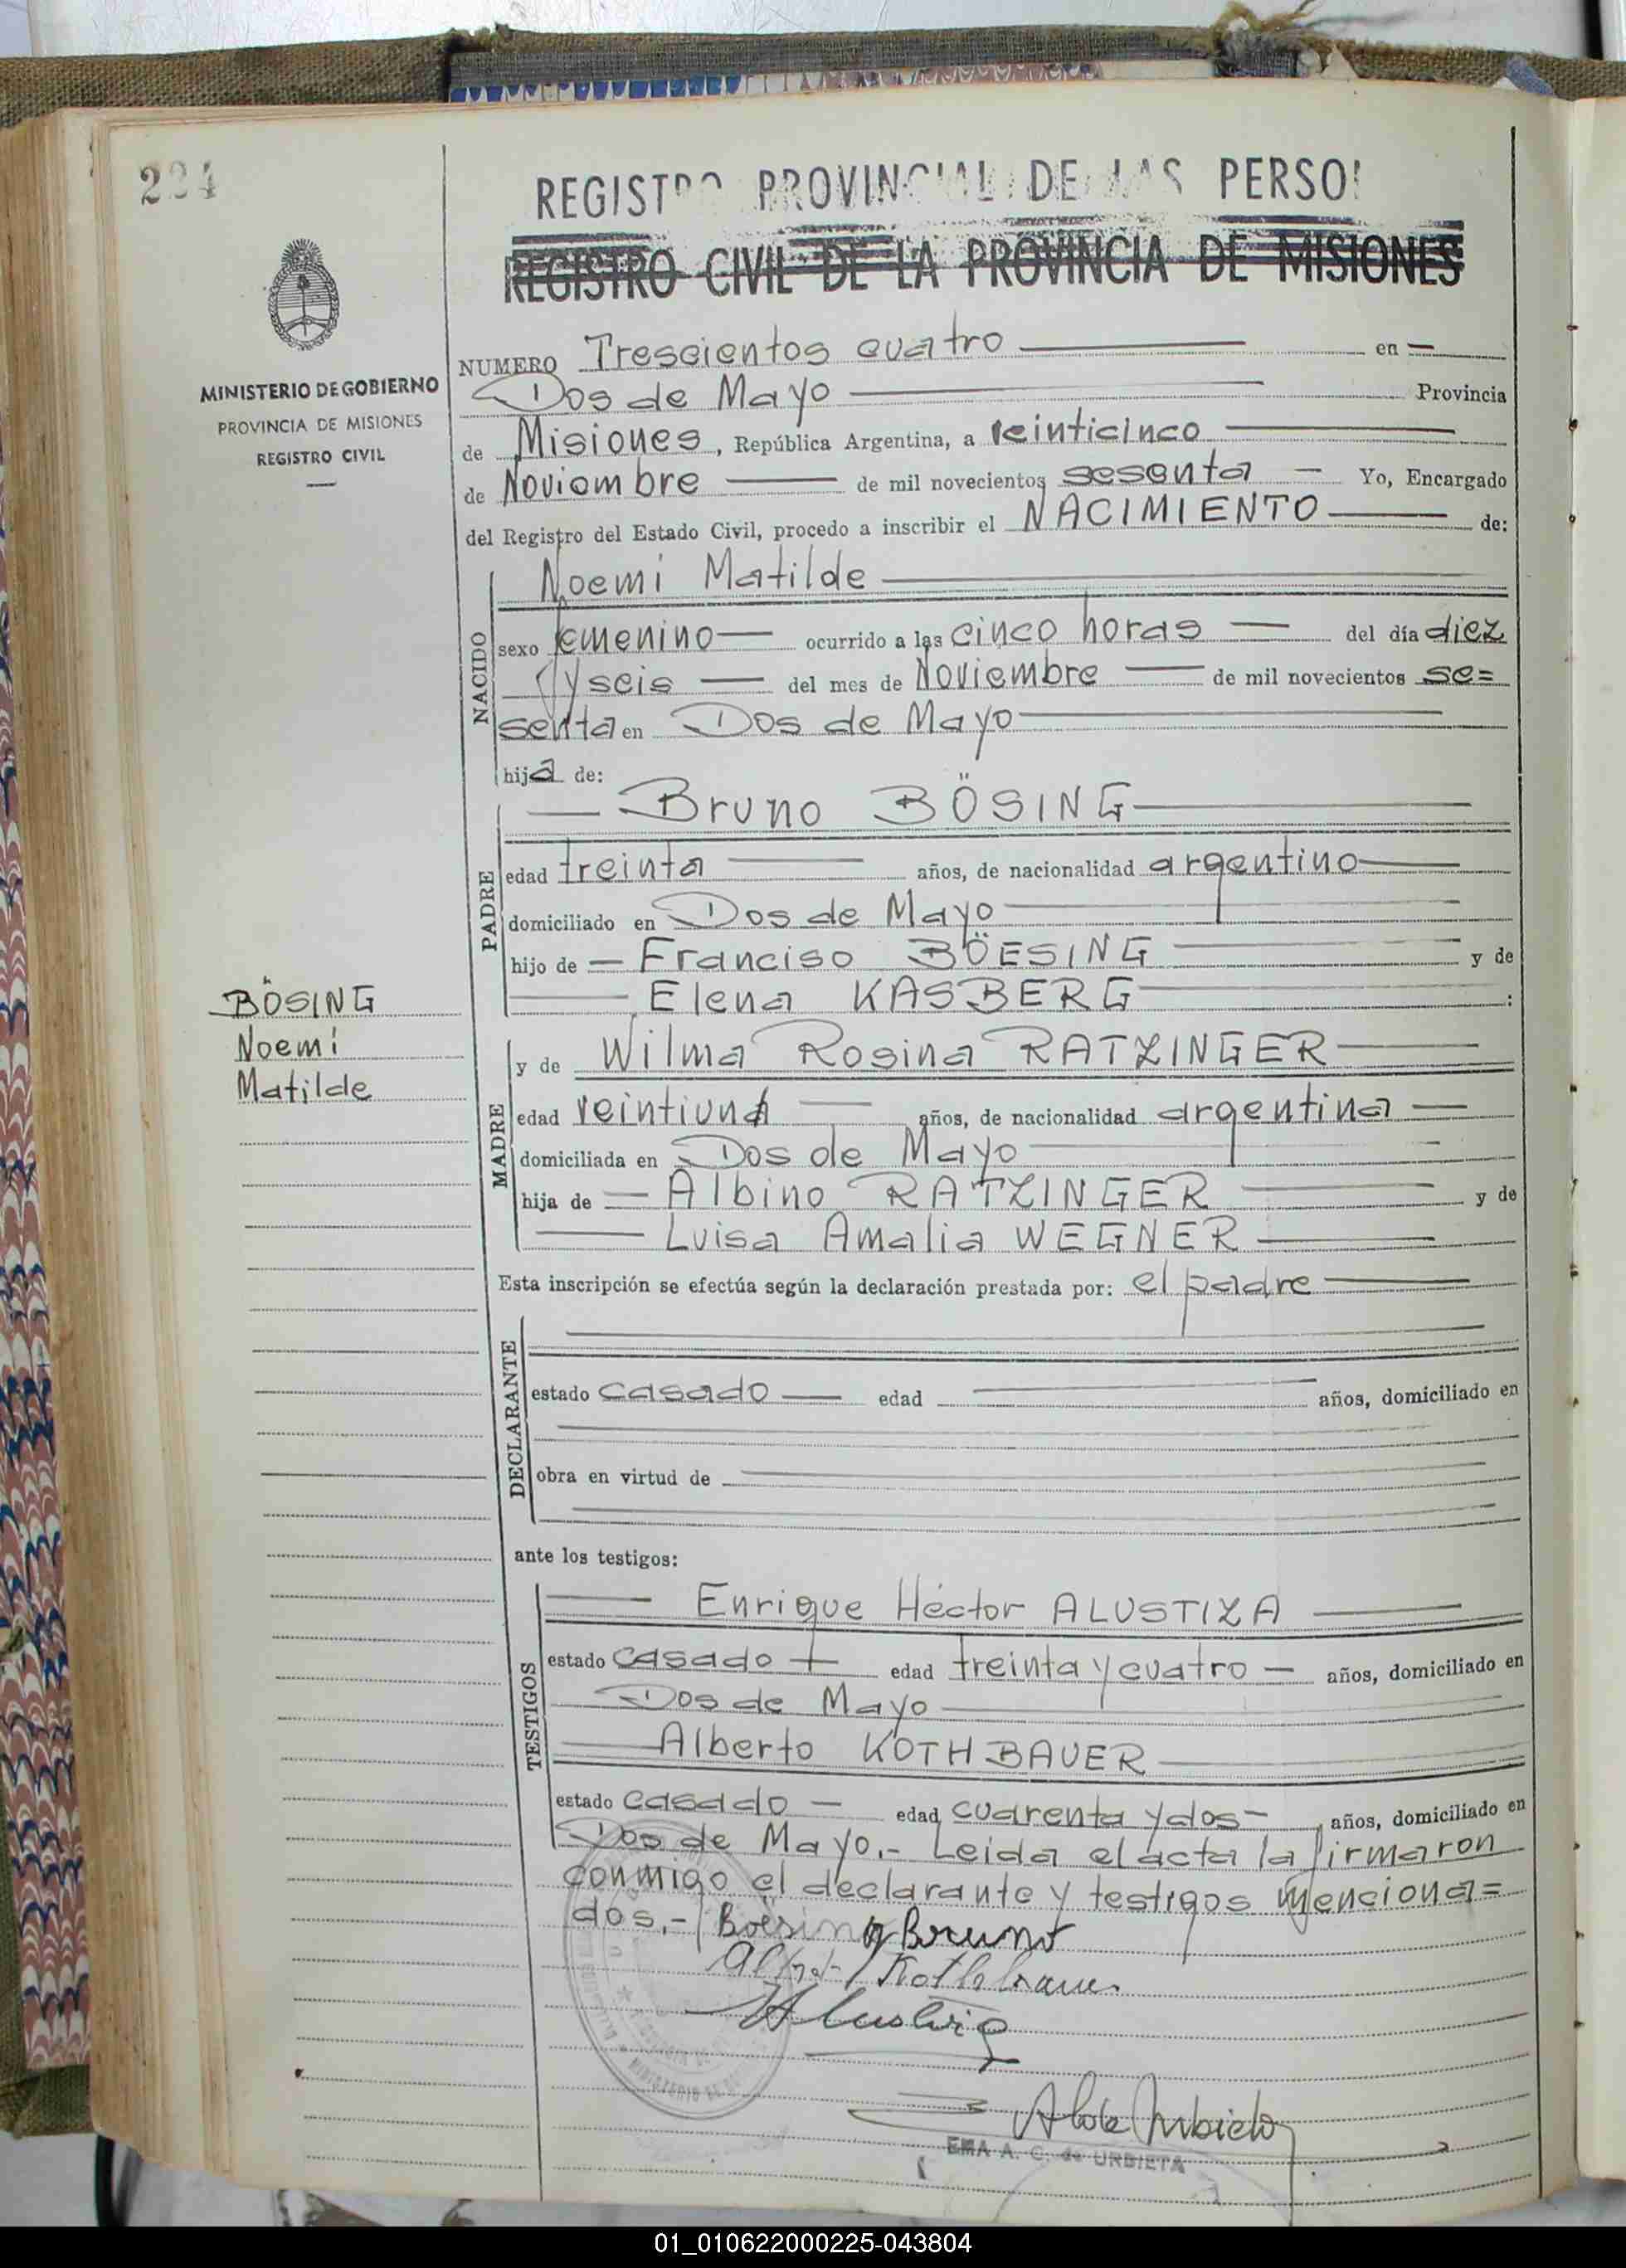 REGISTRO PROVINCIAL DE LAS PERSO
REGISTRO CIVIL DE LA PROVINCIA DE MISIONES
MINISTERIO DE GOBIERNO
PROVINCIA DE MISIONES
REGISTRO CIVIL
NUMERO Trescientos cuatro en
Dos de Mayo Provincia
de Misiones, República Argentina, a veinticinco
de Noviembre de mil novecientos sesenta Yo, Encargado
del Registro del Estado Civil, procedo a inscribir el NACIMIENTO de:
NACIDO
Noemi Matilde
sexo femenino ocurrido a las cinco horas del día diez
y seis del mes de Noviembre de mil novecientos se=
senta en Dos de Mayo
hija de:
PADRE
Bruno BÖSING
edad treinta años, de nacionalidad argentino
domiciliado en Dos de Mayo
hijo de Franciso BÖESING y de
Elena KASBERG:
BÖSING
Noemi
Matilde
MADRE
y de Wilma Rosina RATZINGER
edad veintiuna años, de nacionalidad argentina
domiciliada en Dos de Mayo
hija de Albino RATZINGER y de
Luisa Amalia WEGNER
Esta inscripción se efectúa según la declaración prestada por: el padre
DECLARANTE
estado casado edad años, domiciliado en
obra en virtud de
ante los testigos:
TESTIGOS
Enrique Héctor ALUSTIZA
estado casado edad treinta y cuatro años, domiciliado en
Dos de Mayo
Alberto KOTHBAUER
estado casado edad cuarenta y dos años, domiciliado en
Dos de Mayo.- Leida el acta la firmaron
conmigo el declarante y testigos menciona=
dos.- Boesing Bruno
Kothbauer
Alustiza
EMA A. C. de URBIETA
01_010622000225-043804